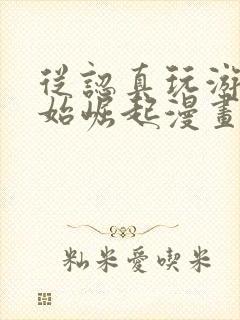 從認真玩游
始崛起漫畫
籼米愛喫米